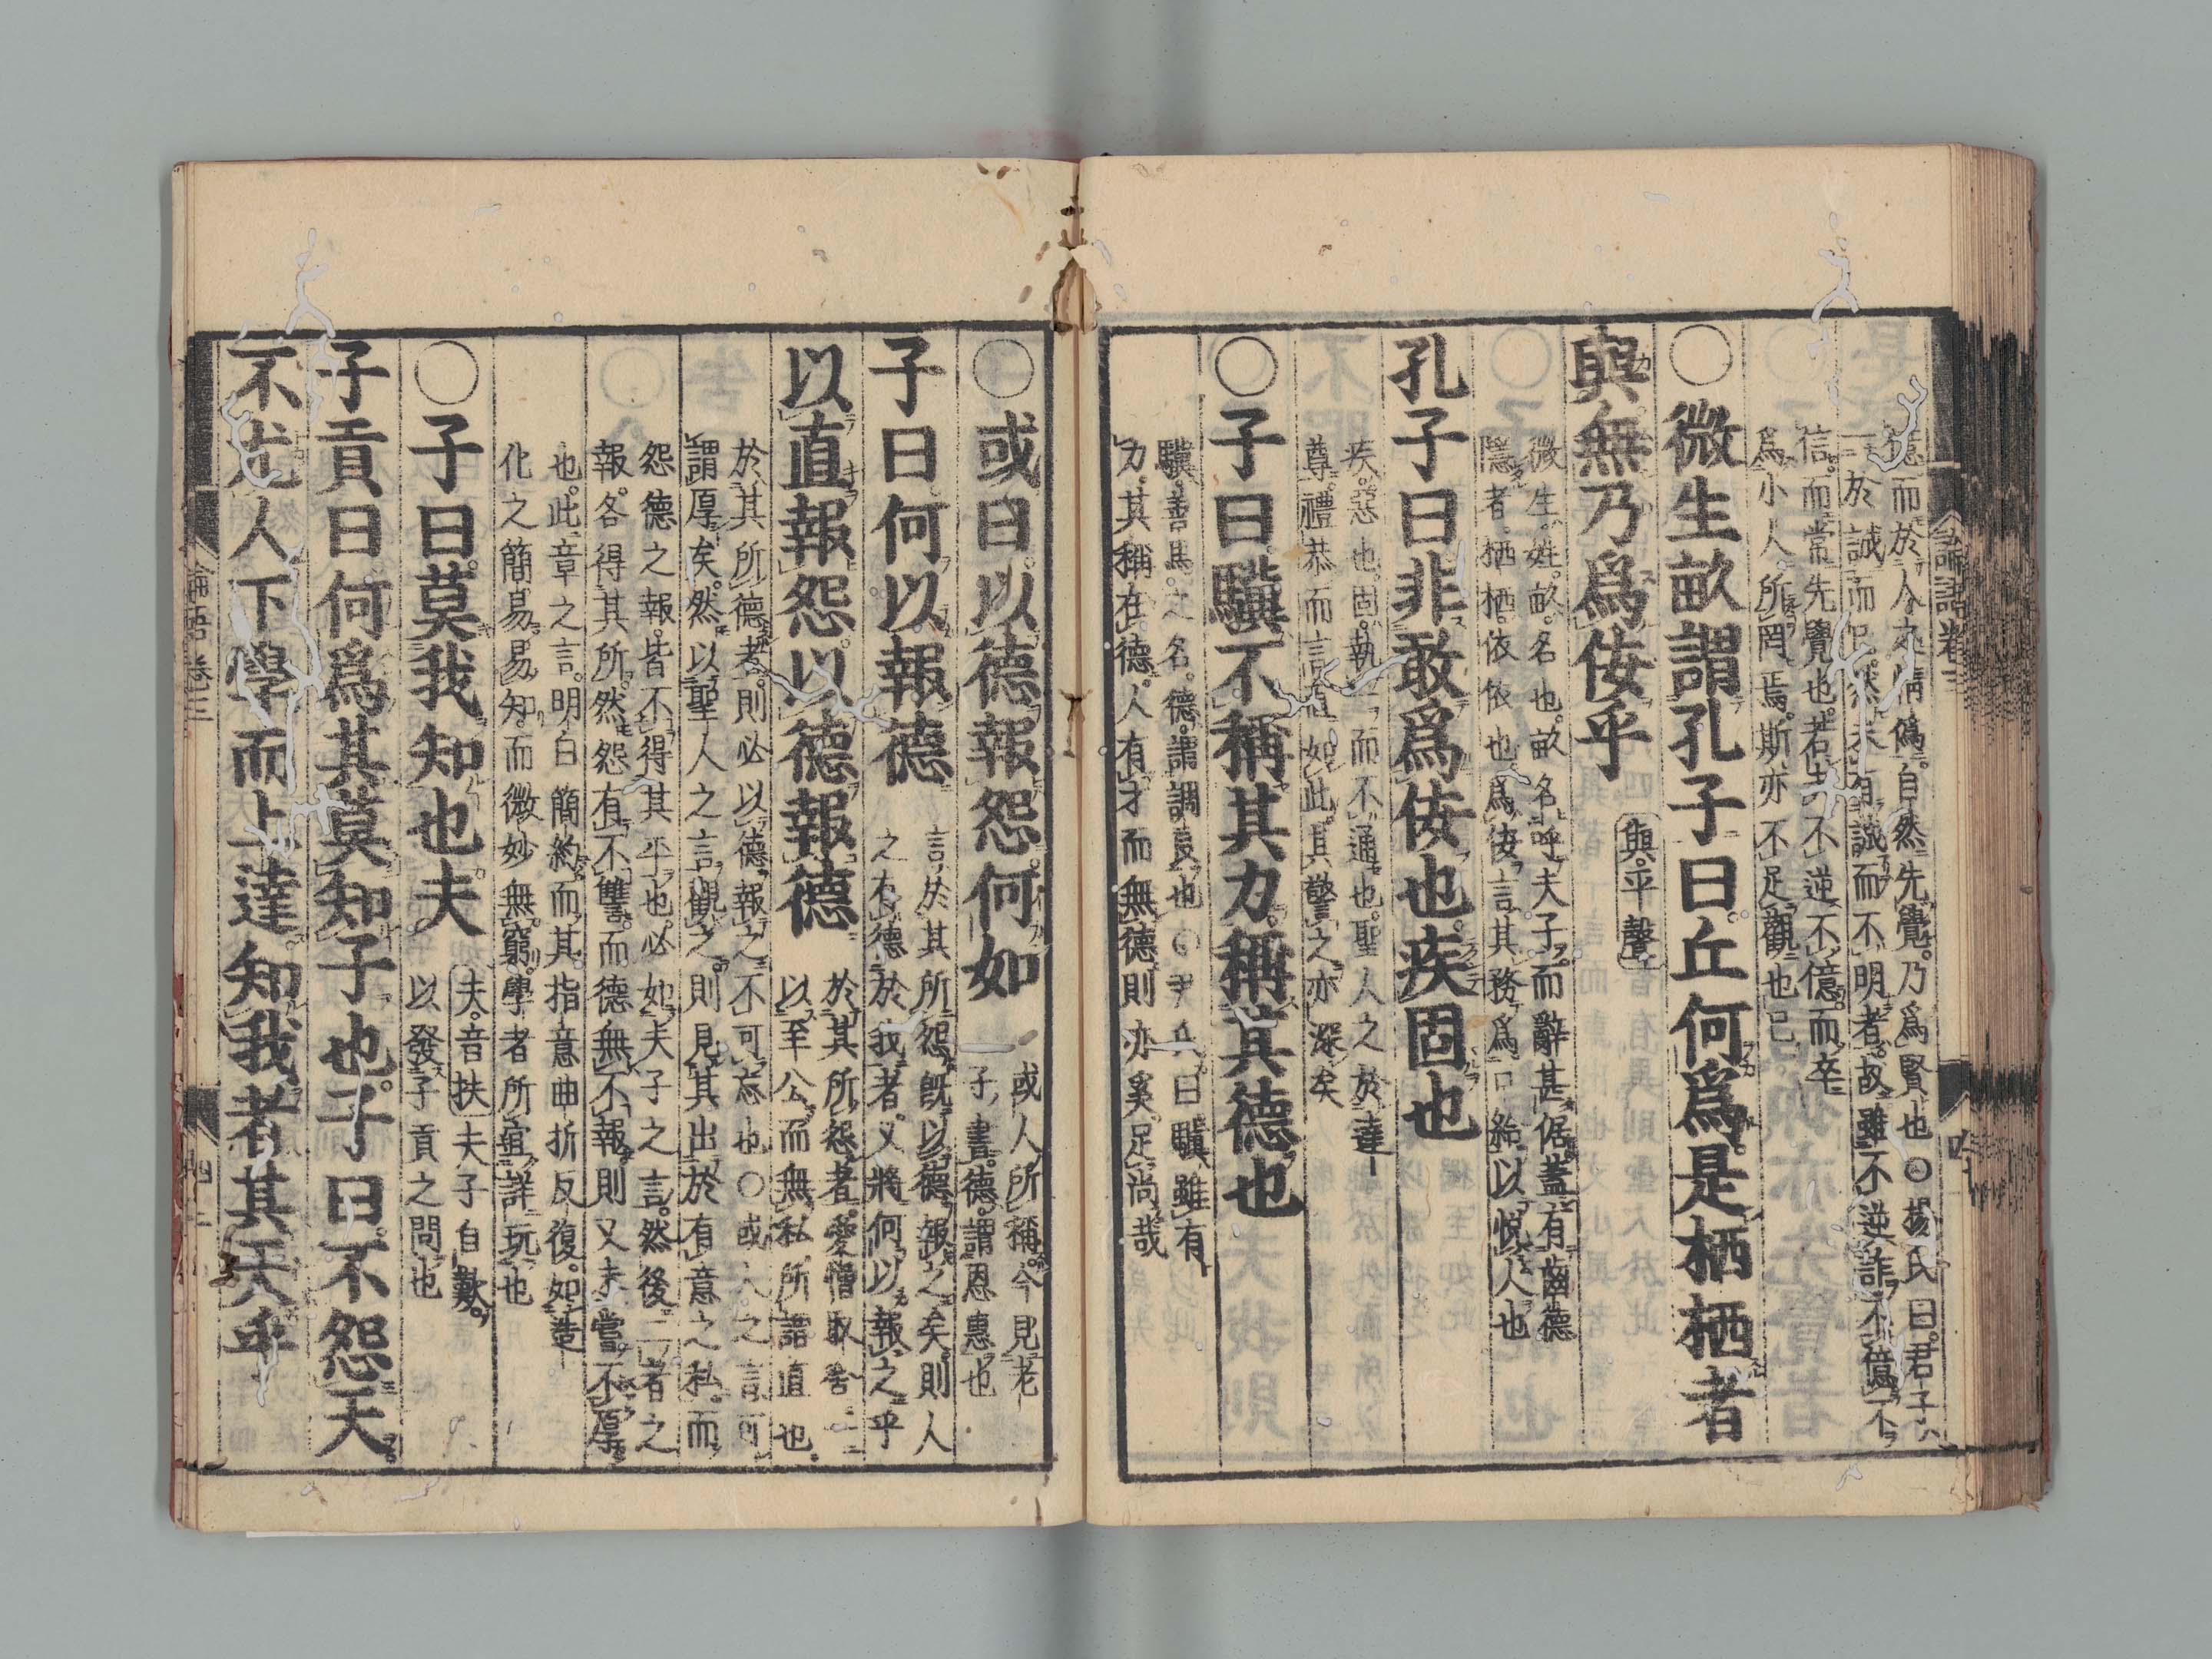 億而於人之情僞自然先覺乃爲賢也○楊氏曰君子
一於誠而已然未有誠而不明者故雖不逆詐不億不
信而常先覺也若夫不逆不億而卒
爲小人所罔焉斯亦不足觀也已
○微生畝謂孔子曰丘何爲是栖栖者
與無乃爲佞乎
與平聲
微生姓畝名也畝名呼夫子而辭甚倨蓋有齒德
隱者栖栖依依也爲佞言其務爲口給以悅人也
孔子曰非敢爲佞也疾固也
疾惡也固執一而不通也聖人之於達
尊禮恭而言直如此其警之亦深矣
○子曰驥不稱其力稱其德也
驥善馬之名德謂調良也○尹氏曰驥雖有
力其稱在德人有才而無德則亦奚足尚哉
○或曰以德報怨何如
或人所稱今見老
子書德謂恩惠也
子曰何以報德
言於其所怨既以德報之矣則人
之有德於我者又將何以報之乎
以直報怨以德報德
於其所怨者愛憎取舍一
以至公而無私所謂直也
於其所德者則必以德報之不可忘也○或人之言可
謂厚矣然以聖人之言觀之則見其出於有意之私而
怨德之報皆不得其平也必如夫子之言然後二者之
報各得其所然怨有不讐而德無不報則又未嘗不厚
也此章之言明白簡約而其指意曲折反復如造
化之簡易易知而微妙無窮學者所宜詳玩也
○子曰莫我知也夫
夫音扶夫子自歎
以發子貢之問也
子貢曰何爲其莫知子也子曰不怨天
不尤人下學而上達知我者其天乎
論語卷三
論語卷三